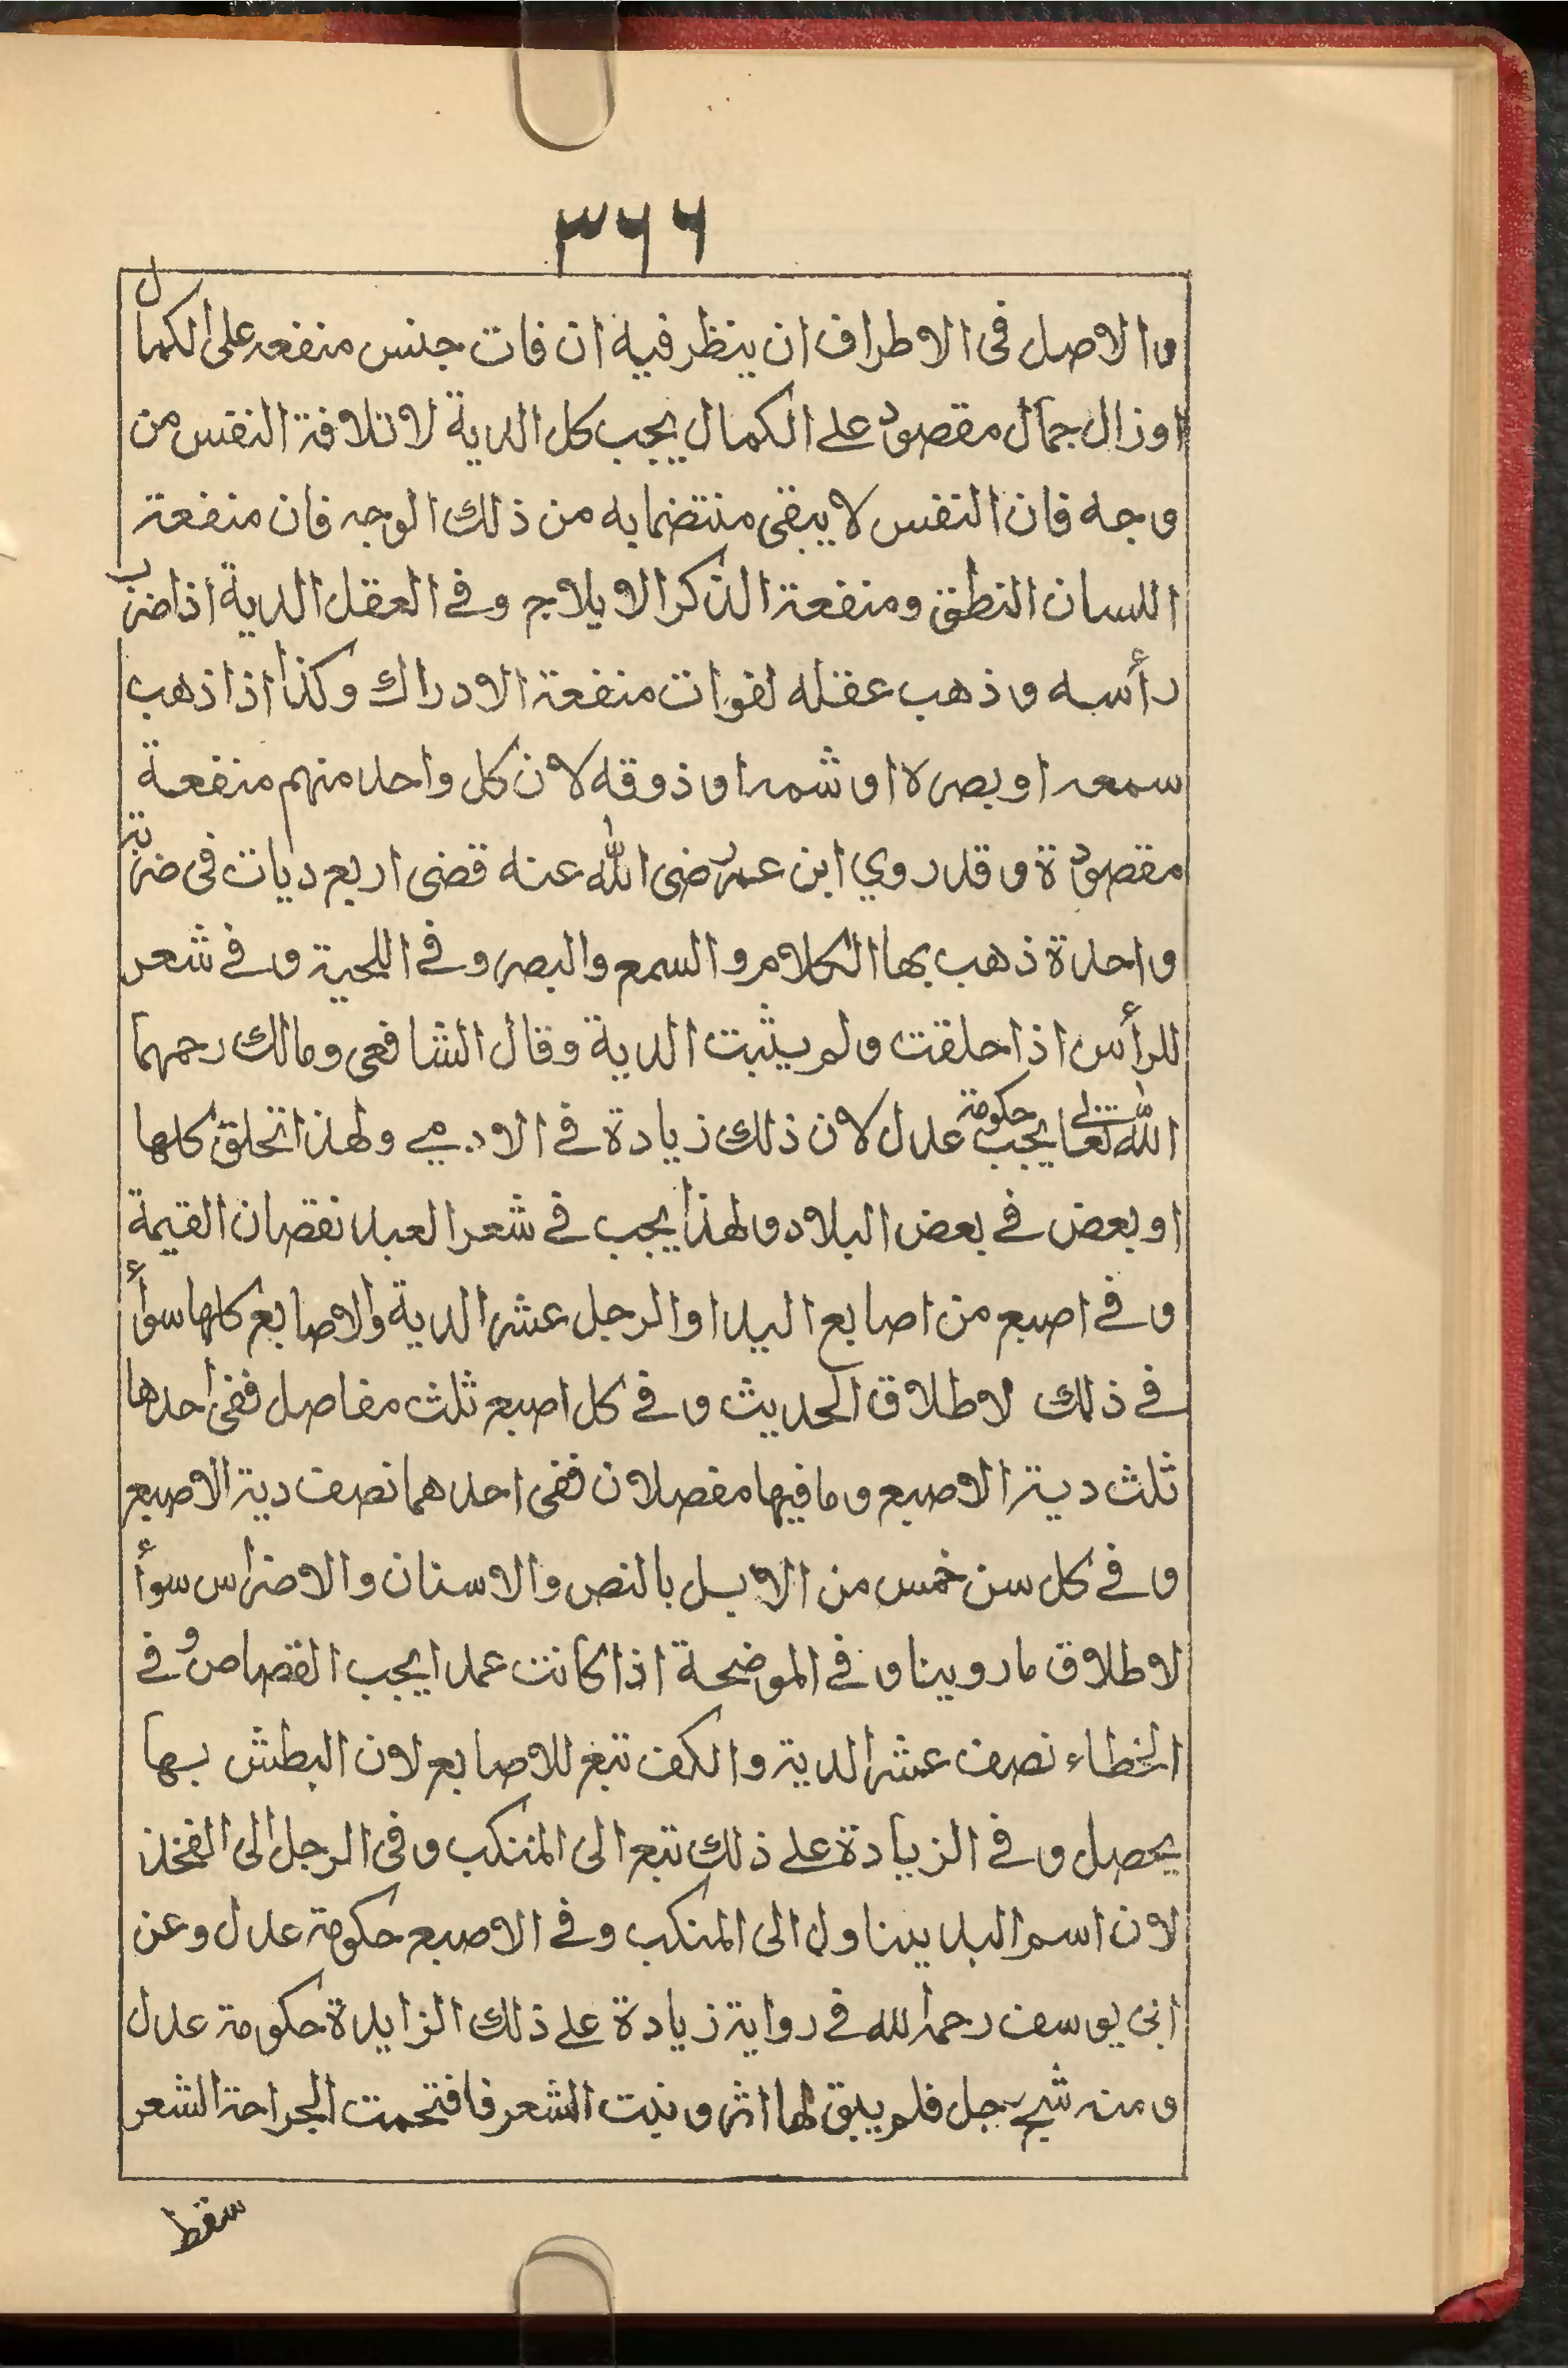 ٣٦٦
والاصل فى الاطراف ان ينظر فيه ان فات جنس منفعة على الكمال
او زال جمال مقصود على الكمال يجب كل الدية لاتلافة النفس من
وجه فان النفس لا يبقى منتضمابه من ذلك الوجه فان منفعة
اللسان النطق ومنفعة الذكر الايلاج وفى العقل الدية اذا ضرب
رأسه وذهب عقله لفوات منفعة الادراك وكذا اذا ذهب
سمعه او بصره او شمه او ذوقه لان كل واحد منهم منفعة
مقصودة وقد روي ابن عمر رضى الله عنه قضى اربع ديات فى ضربة
واحدة ذهب بها الكلام والسمع والبصر وفى اللحية وفى شعر
للرأس اذا حلقت ولم يثبت الدية وقال الشافعى ومالك رحمهما
الله تعالى يجب حكومة عدل لان ذلك زيادة فى الادمي ولهذا تحلق كلها
او بعض فى بعض البلاد ولهذا يجب فى شعر العبد نقصان القيمة
وفى اصبع من اصابع اليد او الرجل عشر الدية والاصابع كلها سوأ
فى ذلك لاطلاق الحديث وفى كل اصبع ثلث مفاصل ففى احدها
ثلث دية الاصبع وما فيها مفصلان ففى احدهما نصف دية الاصبع
وفى كل سن خمس من الابل بالنص والاسنان والاضراس سوأ
لاطلاق ما روينا وفى الموضحة اذا كانت عمدا يجب القصاص وفى
الخطاء نصف عشر الدية والكف تبع للاصابع لان البطش بها
يحصل وفى الزيادة على ذلك تبع الى المنكب وفى الرجل الى الفخذ
لان اسم اليد يتناول الى المنكب وفى الاصبع حكومة عدل وعن
ابى يوسف رحمه الله فى رواية زيادة على ذلك الزايدة حكومة عدل
ومنه شج رجل فلم يبق لها اثر ونبت الشعر فافتحمت الجراحة الشعر
سقط